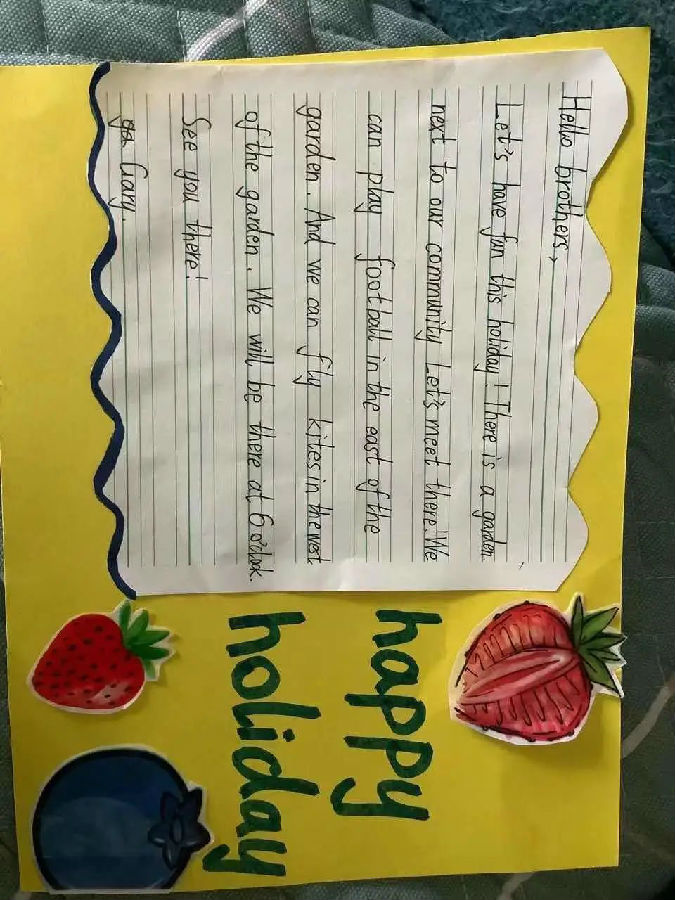 Hello brothers,
Let's have fun this holiday! There is a garden
next to our community. Let's meet there. We
can play football in the east of the
garden. And we can fly kites in the west
of the garden. We will be there at 6 o'clock.
See you there!
Gary.
happy
holiday